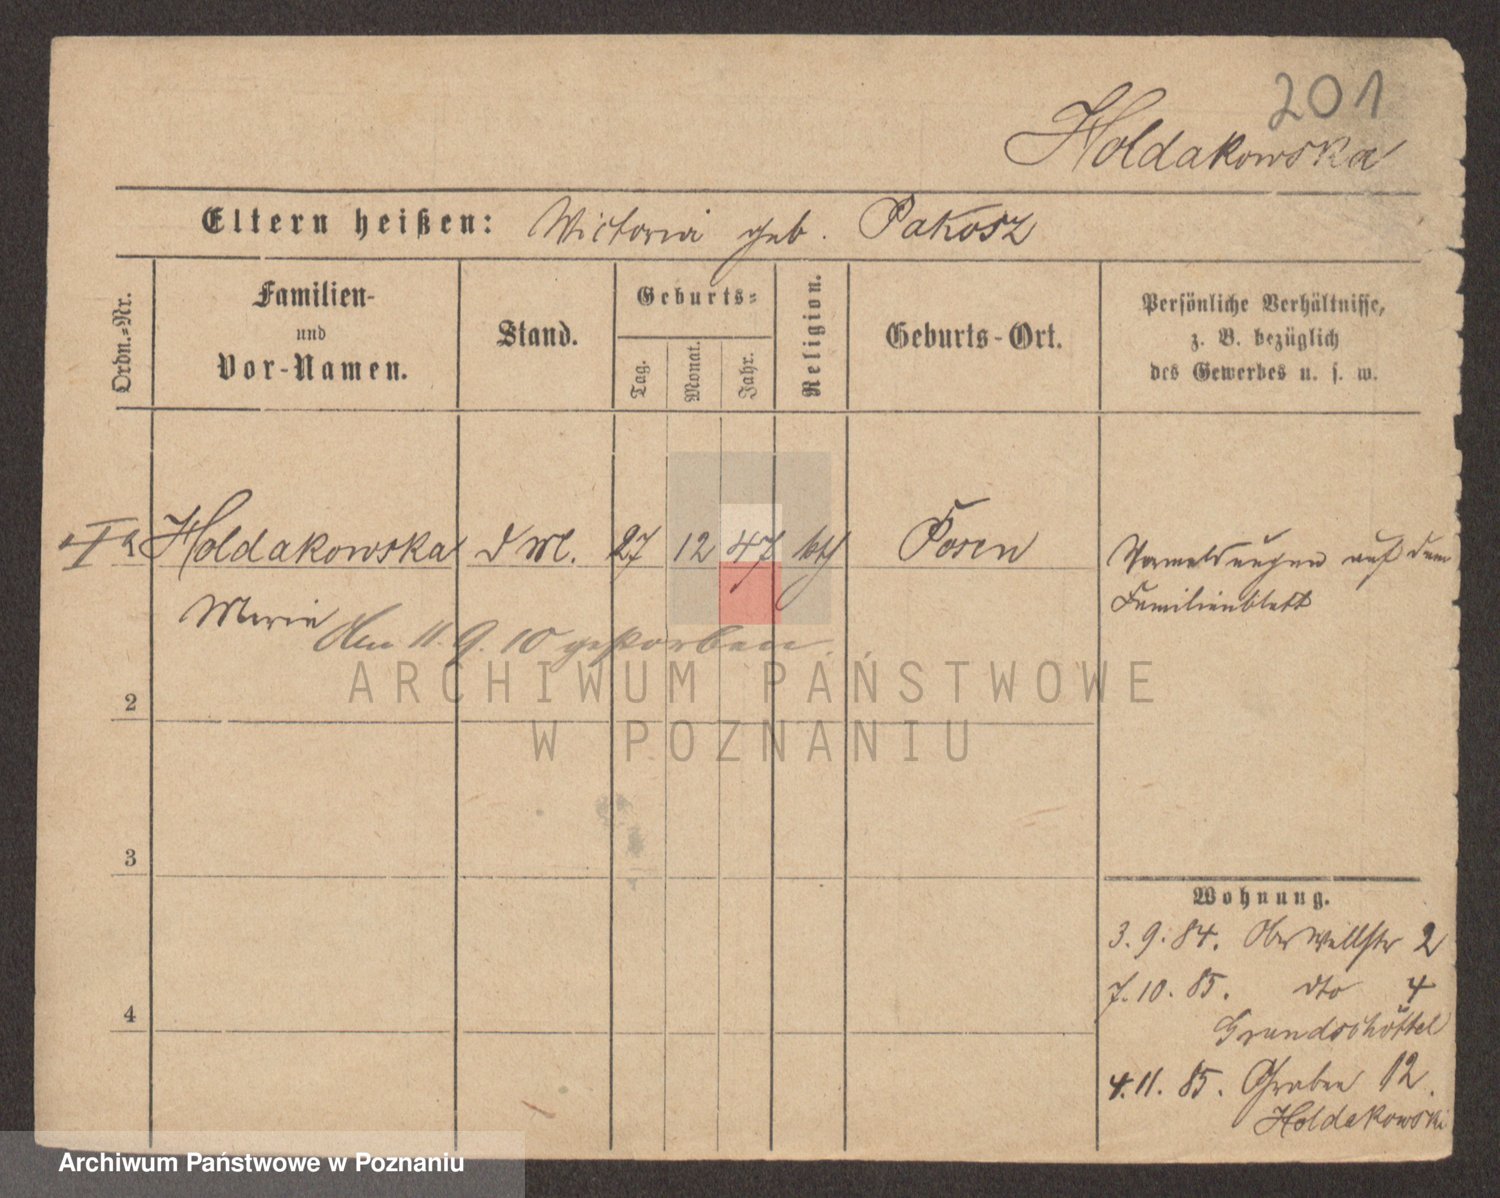 201
Holdakowska
Eltern heißen: Victoria geb. Pakosz
Ordn.-Nr.
Familien-
und
Vor-Namen.
Stand.
Geburts-
Tag.
Monat.
Jahr.
Religion.
Geburts-Ort.
Persönliche Verhältnisse,
z. B. bezüglich
des Gewerbes u. s. w.
Holdakowska d M. 27 12 47 kth Posen
Marie
den 11. 9. 10 gestorben.
Vormeldungen auf dem
Familienblatt
2
3
4
Wohnung.
3. 9. 84. Ober Wallstr 2
7. 10. 85. dto 4
Grundschöttel
4. 11. 85. Graben 12.
Holdakowski
ARCHIWUM PAŃSTWOWE
W POZNANIU
Archiwum Państwowe w Poznaniu